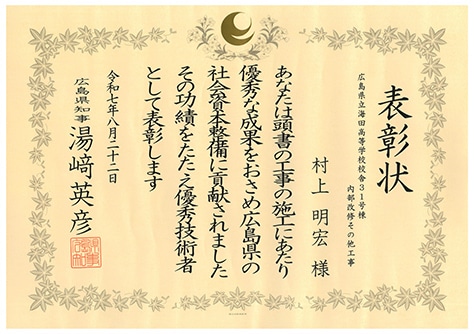 表彰状
広島県立海田高等学校校舎31号棟
内部改修その他工事
村上 明宏 様
あなたは頭書の工事の施工にあたり
優秀な成果をおさめ広島県の
社会資本整備に貢献されました
その功績をたたえ優秀技術者
として表彰します
令和七年八月二十二日
広島県知事 湯﨑英彦